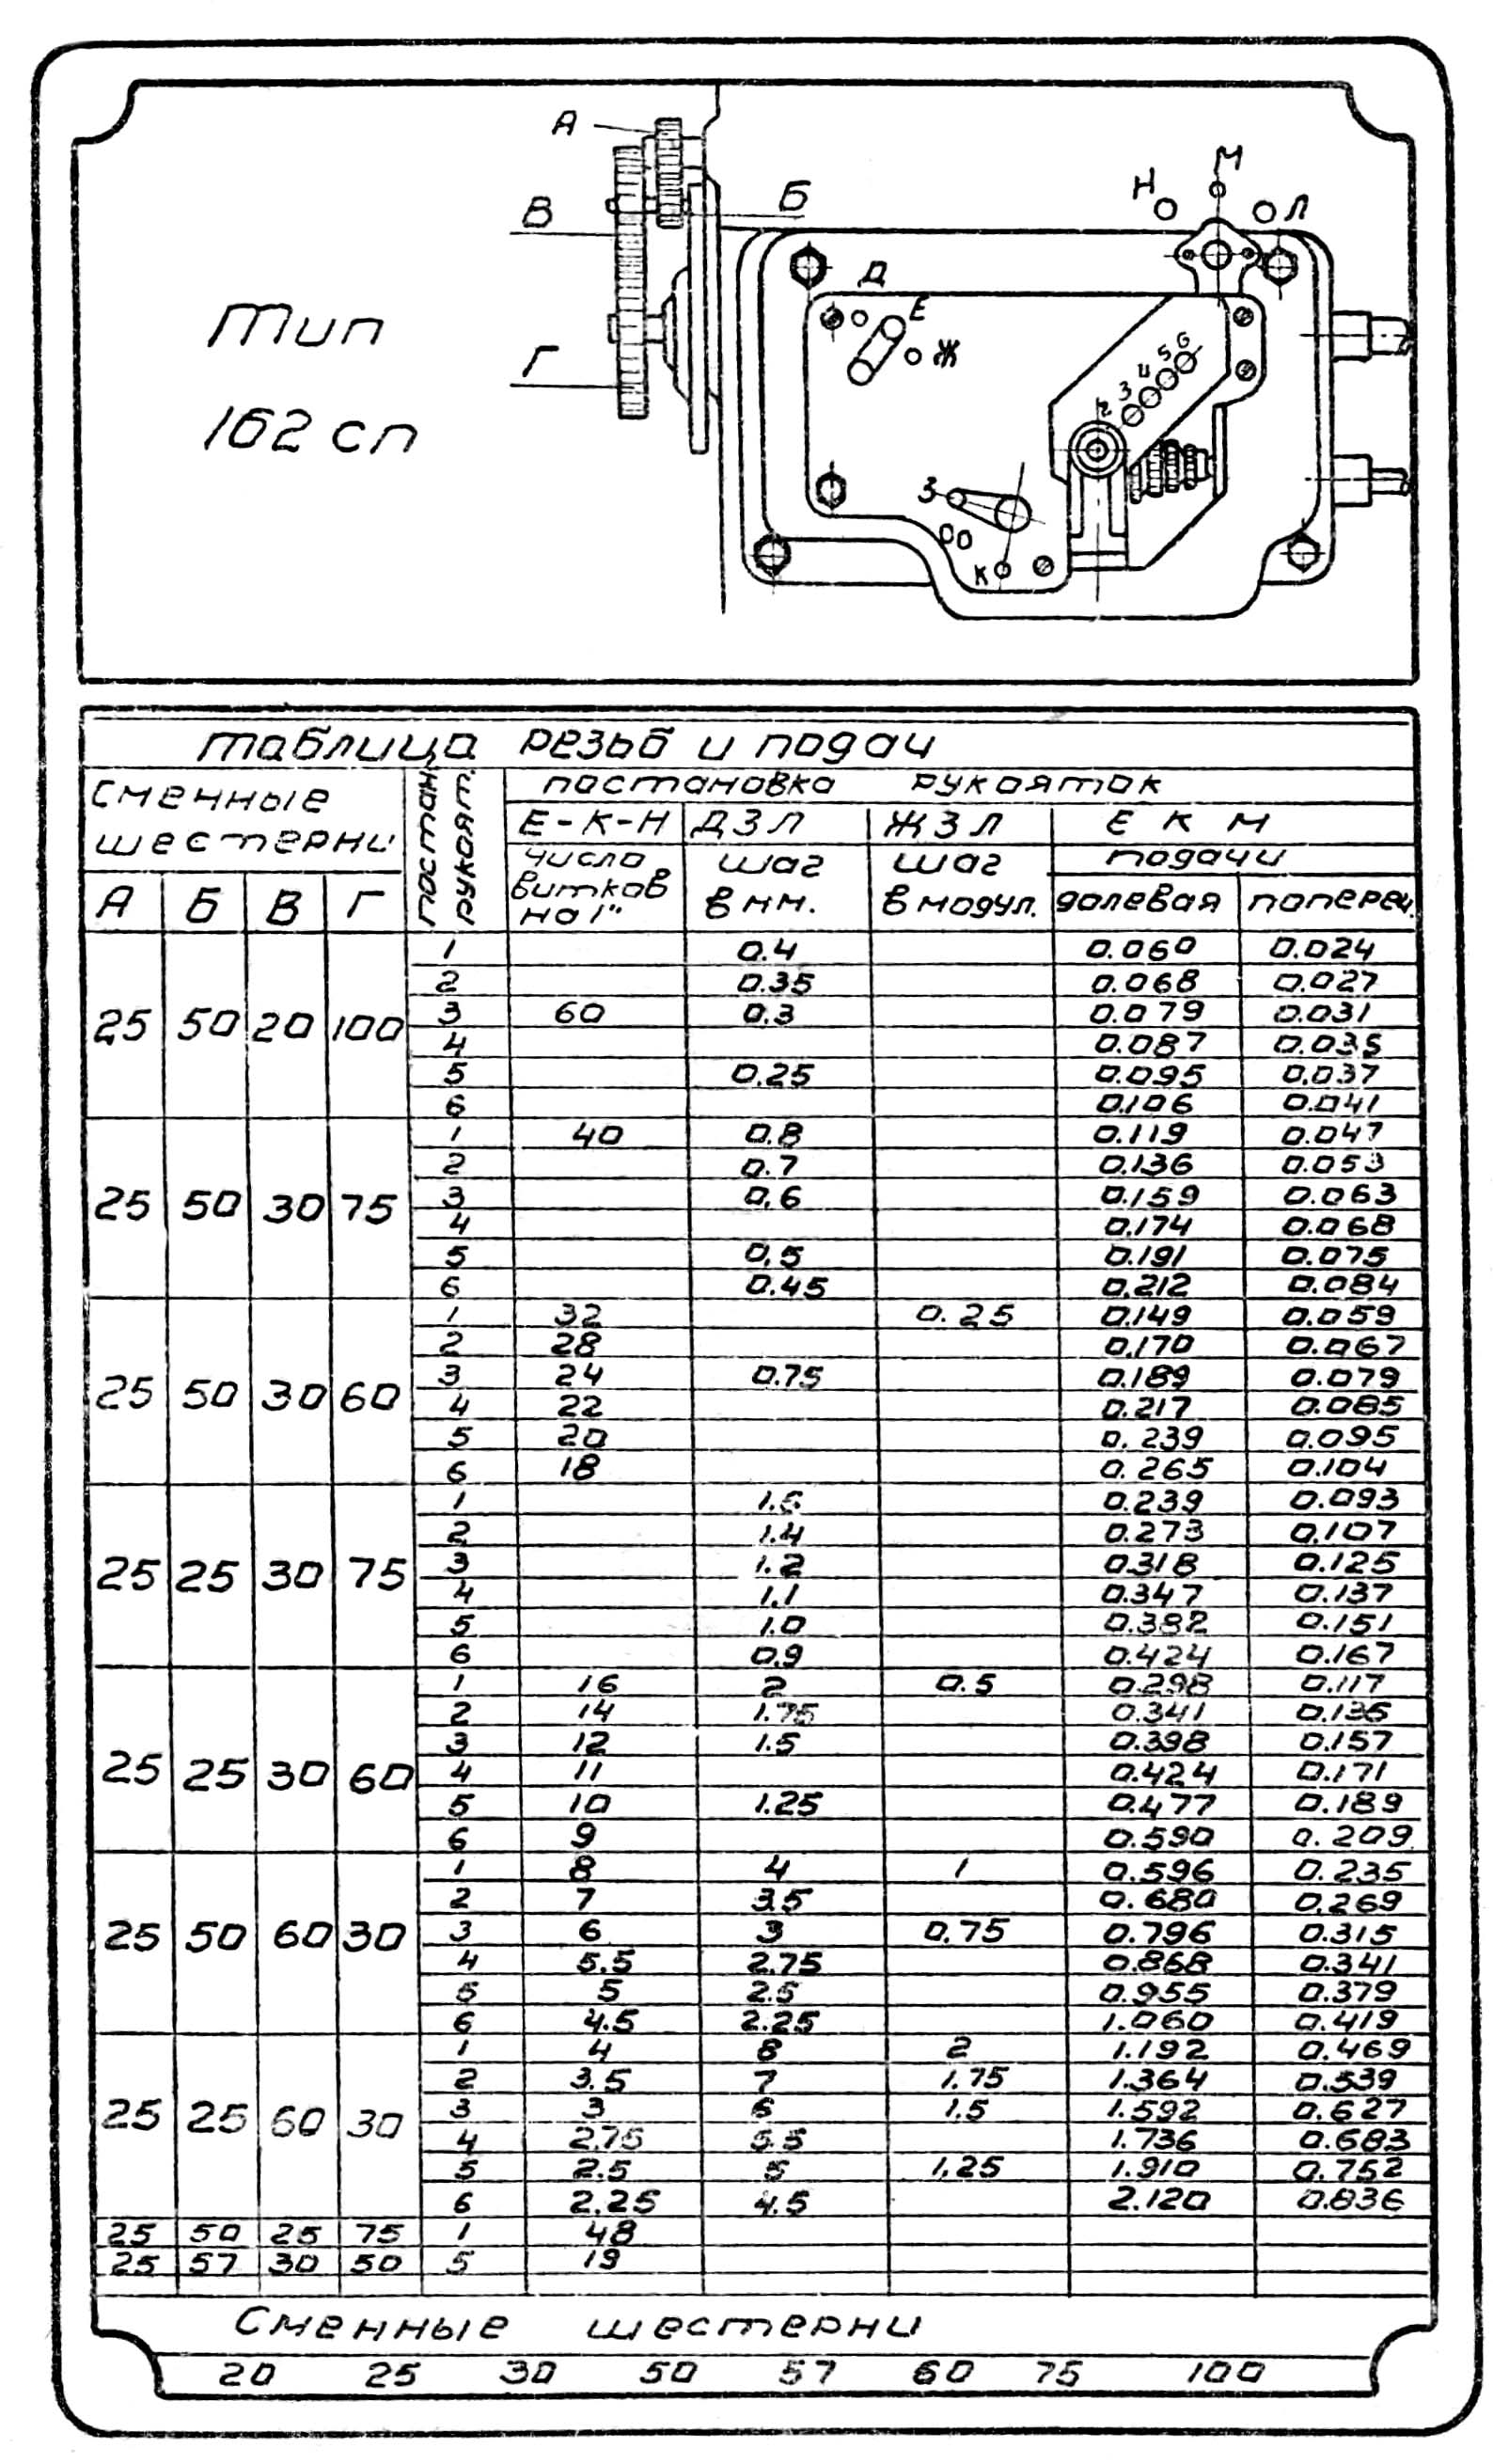 А
Б
В
Г
Тип
162 сп
Н М Л
Д Е Ж
2 3 4 5 6
З
К
таблица резьб и подач
Сменные шестерни
постан. рукоят.
постановка рукояток
Е-К-Н ДЗЛ ЖЗЛ Е К М
число витков на 1" шаг в мм. шаг в модул. подачи
А Б В Г долевая попереч.
25 50 20 100
1 0.4 0.060 0.024
2 0.35 0.068 0.027
3 60 0.3 0.079 0.031
4 0.087 0.035
5 0.25 0.095 0.037
6 0.106 0.041
25 50 30 75
1 40 0.8 0.119 0.047
2 0.7 0.136 0.053
3 0.6 0.159 0.063
4 0.174 0.068
5 0.5 0.191 0.075
6 0.45 0.212 0.084
25 50 30 60
1 32 0.25 0.149 0.059
2 28 0.170 0.067
3 24 0.75 0.189 0.079
4 22 0.217 0.085
5 20 0.239 0.095
6 18 0.265 0.104
25 25 30 75
1 1.6 0.239 0.093
2 1.4 0.273 0.107
3 1.2 0.318 0.125
4 1.1 0.347 0.137
5 1.0 0.382 0.151
6 0.9 0.424 0.167
25 25 30 60
1 16 2 0.5 0.298 0.117
2 14 1.75 0.341 0.135
3 12 1.5 0.398 0.157
4 11 0.424 0.171
5 10 1.25 0.477 0.189
6 9 0.590 0.209
25 50 60 30
1 8 4 1 0.596 0.235
2 7 3.5 0.680 0.269
3 6 3 0.75 0.796 0.315
4 5.5 2.75 0.868 0.341
5 5 2.5 0.955 0.379
6 4.5 2.25 1.060 0.419
25 25 60 30
1 4 8 2 1.192 0.469
2 3.5 7 1.75 1.364 0.539
3 3 6 1.5 1.592 0.627
4 2.75 5.5 1.736 0.683
5 2.5 5 1.25 1.910 0.752
6 2.25 4.5 2.120 0.836
25 50 25 75 1 48
25 57 30 50 5 19
Сменные шестерни
20 25 30 50 57 60 75 100